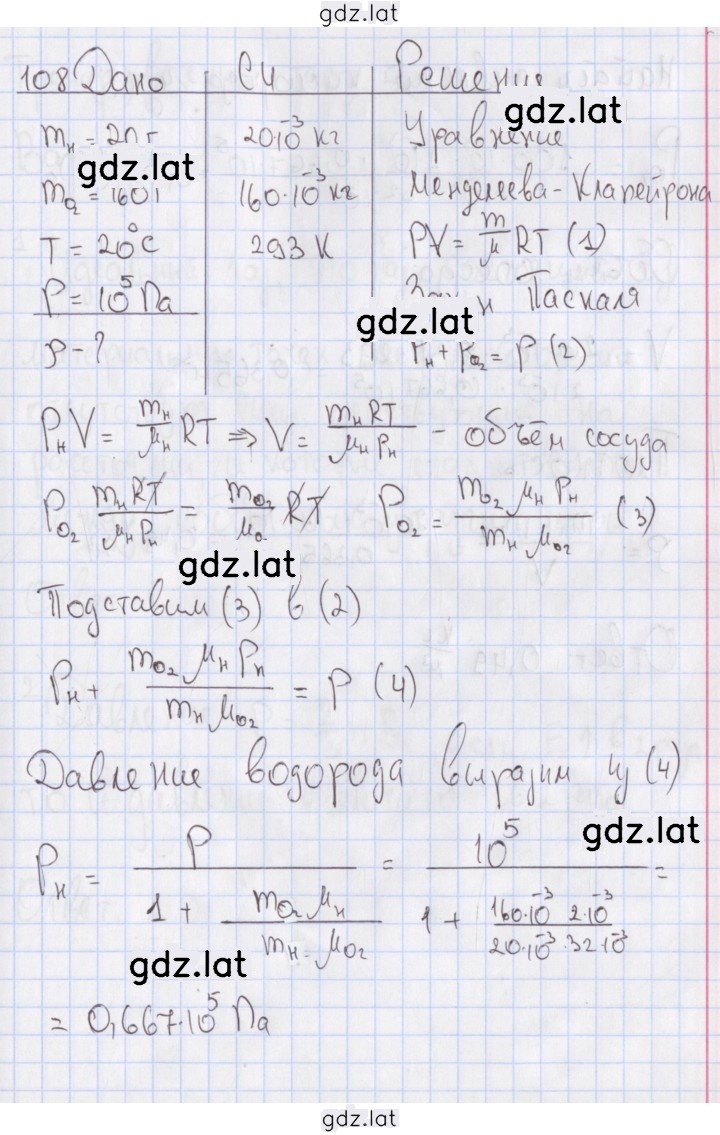 gdz.lat
108 Дано СИ Решение
gdz.lat
m_н = 20 г 20·10⁻³ кг Уравнение
gdz.lat
m_O₂ = 160 г 160·10⁻³ кг Менделеева-Клапейрона
T = 20°C 293 K PV = m/μ RT (1)
P = 10⁵ Па Паскаля
gdz.lat
p - ? + p_O₂ = P (2)
P_н V = m_н/μ_н RT ⇒ V = m_н RT/μ_н P_н - объём сосуда
P_O₂ m_н RT/μ_н P_н = m_O₂/μ_O RT P_O₂ = m_O₂ μ_н P_н/m_н μ_O₂ (3)
gdz.lat
Подставим (3) в (2)
P_н + m_O₂ μ_н P_н/m_н μ_O₂ = P (4)
Давление водорода выразим из (4)
gdz.lat
P_н = P/(1 + m_O₂ μ_н/m_н · μ_O₂) = 10⁵/(1 + 160·10⁻³ 2·10⁻³/20·10⁻³ · 32·10⁻³) =
gdz.lat
= 0,667·10⁵ Па
gdz.lat